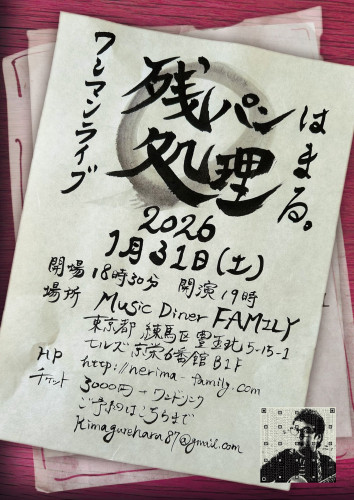 はまる。
残パン
処理
ワンマンライブ
2026
1月31日(土)
開場 18時30分 開演 19時
場所 Music Diner FAMILY
東京都 練馬区 豊玉北5-15-1
ヒルズ京栄6番館 B1F
HP http://nerima-family.com
チケット 3000円+ワンドリンク
ご予約はこちらまで
kimagurehara87@gmail.com